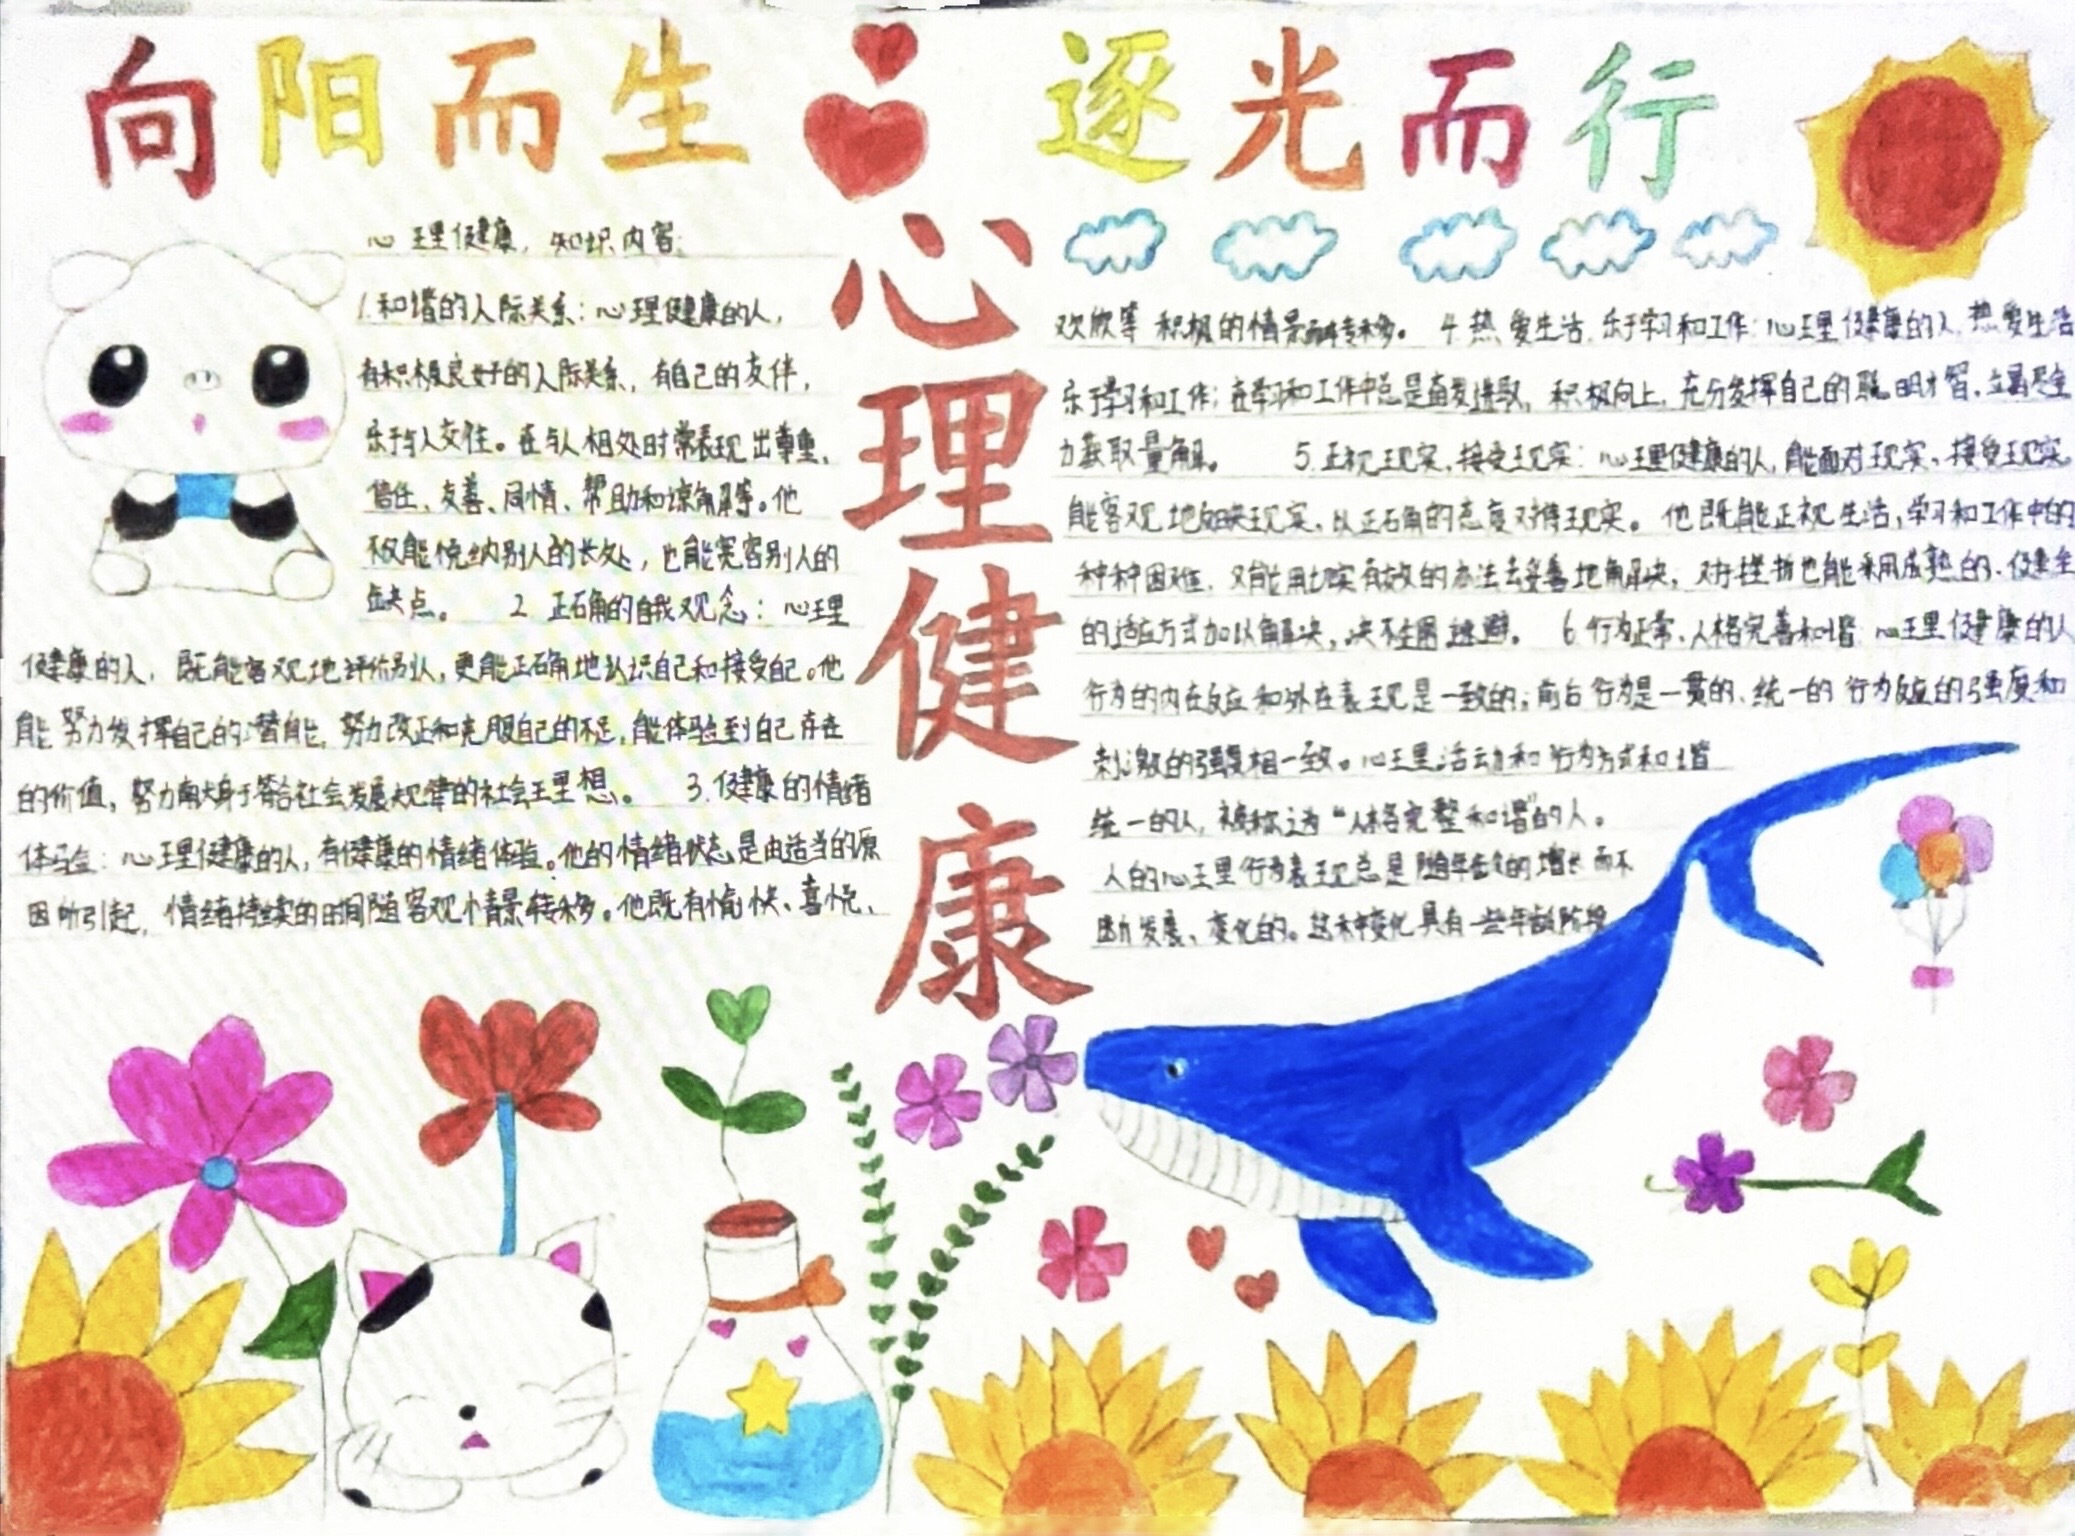 向阳而生
逐光而行
心理健康
心理健康,知识内容:
1.和谐的人际关系:心理健康的人,
有积极良好的人际关系,有自己的友伴,
乐于与人交住。在与人相处时常表现出尊重、
信任、友善、同情、帮助和谅解等。他
不仅能悦纳别人的长处,也能宽容别人的
缺点。 2.正确的自我观念:心理
健康的人,既能客观地评价别人,更能正确地认识自己和接受自己。他
能努力发挥自己的潜能,努力改正和克服自己的不足,能体验到自己存在
的价值,努力献身于符合社会发展规律的社会理想。 3.健康的情绪
体验:心理健康的人,有健康的情绪体验。他的情绪状态是由适当的原
因所引起,情绪持续的时间随客观情景转移。他既有愉快、喜悦、
欢欣等积极的情景转移。 4.热爱生活,乐于学习和工作:心理健康的人,热爱生活
乐于学习和工作;在学习和工作中总是奋发进取,积极向上,充分发挥自己的聪明才智,
力获取量解。 5.正视现实,接受现实:心理健康的人,能面对现实、接受现实,
能客观地 现实,以正确的态度对待现实。他既能正视生活,学习和工作中的
种种困难,又能用切实有效的办法去妥善地解决,对于挫折也能采用成熟的、健全
的适应方式加以解决,决不生困逃避。 6.行为正常,人格完善和谐:心理健康的人
行为的内在反应和外在表现是一致的;前后行为是一贯的、统一的行为反应的强度和
刺激的强度相一致。心理活动和行为方式和谐
统一的人,被称之为“人格完整和谐”的人。
人的心理行为表现总是随年龄的增长而不
断发展、变化的。这种变化具有一些年龄阶段